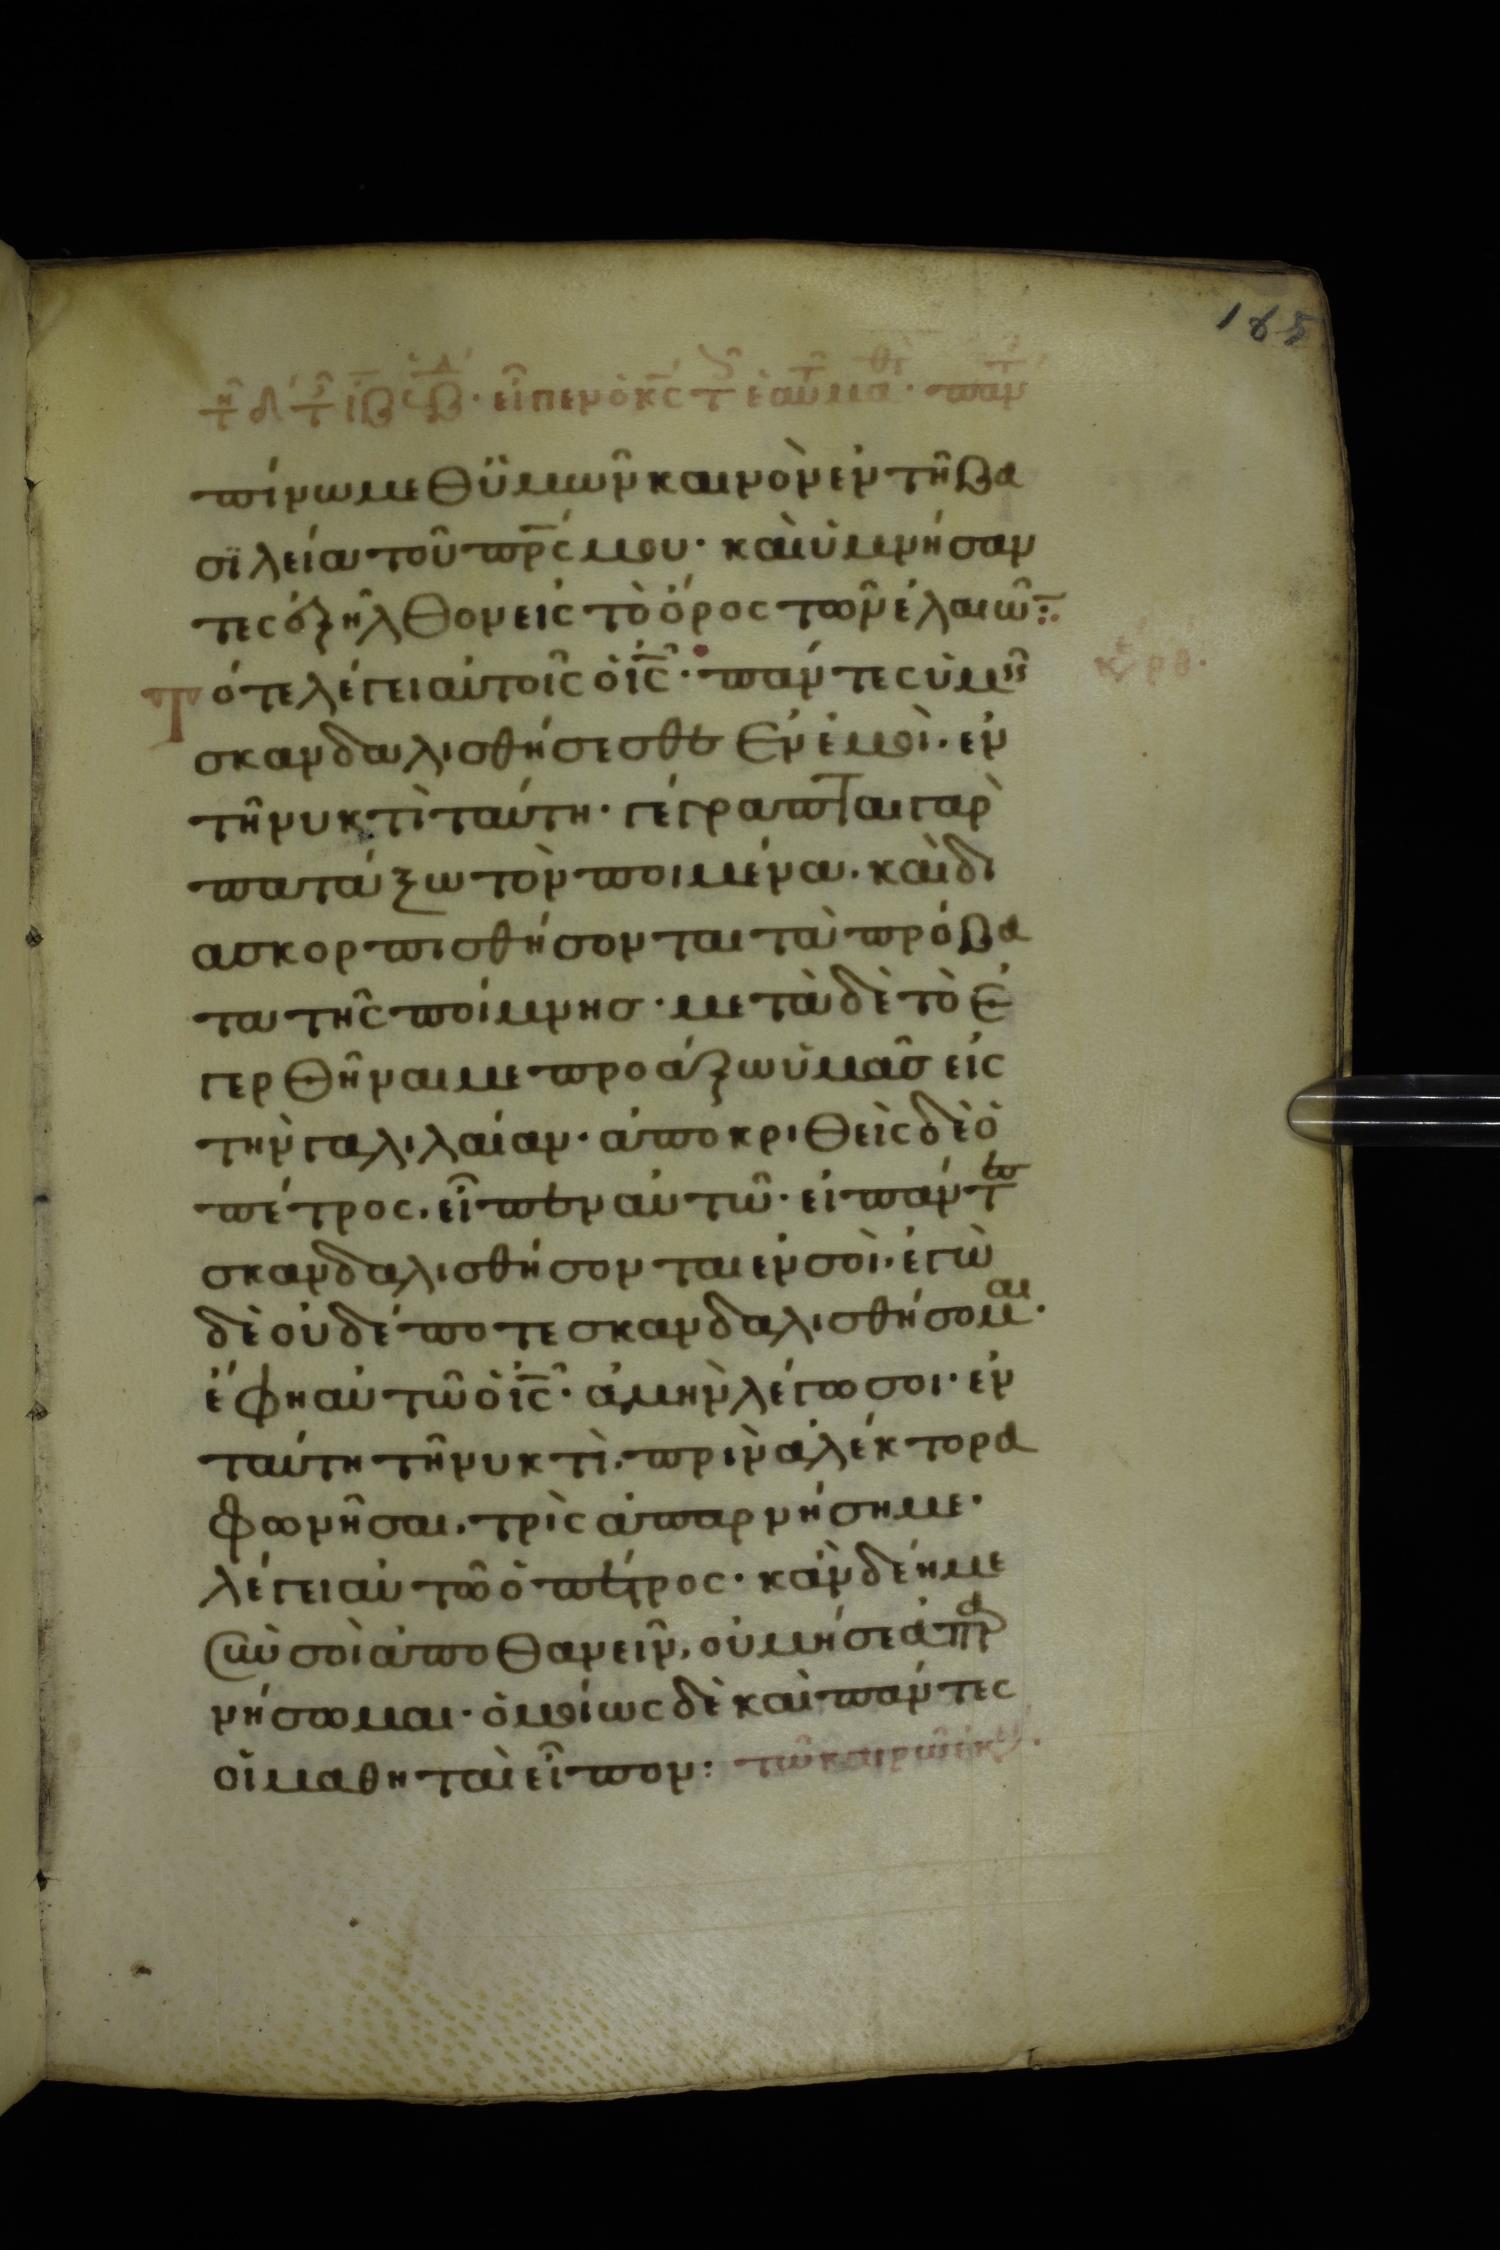 165
εἶπεν ὁ κ̅ς τ ἑαυ μαθ παν
πίνω μεθ ϋμῶν καινὸν ἐν τῆ βα
σϊλεία τοῦ πρ̅ς μου· καὶ ὑμνήσαν
τες ἐξῆλθον εἰς τὸ ὄρος τῶν ἐλαιῶ:
Τότε λέγει αὐτοῖς ὁ ι̅ς· πάντες ὑμεῖς
σκανδαλισθήσεσθε ἐν ἐμοὶ· ἐν
τῆ νυκτὶ ταύτη· γέγραπται γὰρ
πατάξω τὸν ποιμένα· καὶ δι
ασκορπισθήσονται τὰ πρόβα
τα τῆς ποίμνησ· μετὰ δὲ τὸ ἐ
γερθῆναι με προάξω ὑμᾶσ εἰς
τὴν γαλιλαίαν· ἀποκριθεὶς δὲ ὁ
πέτρος. εἶπεν αὐτῶ· εἰ πάντες
σκανδαλισθήσονται ἐν σοὶ· ἐγὼ
δὲ οὐδέποτε σκανδαλισθήσομαι·
ἔφη αὐτῶ ὁ ι̅ς· ἀμὴν λέγω σοι· ἐν
ταύτη τῆ νυκτὶ. πρὶν ἀλέκτορα
φωνῆσαι. τρὶς ἀπαρνήση με·
λέγει αὐτῶ ὁ πέτρος· κἂν δέη με
σὺν σοὶ ἀποθανεῖν, οὐ μή σε ἀπαρ
νήσωμαι· ὁμοίως δὲ καὶ πάντες
οἱ μαθηταὶ εἶπον: τῶ καιρῶ ἐκ